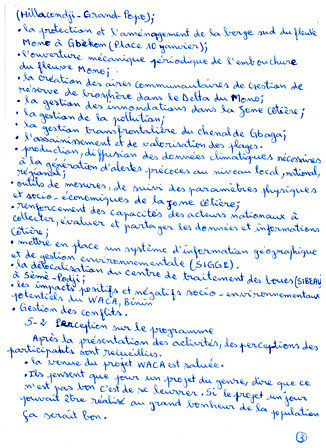 (Hillacondji-Grand-Popo);
• la protection et l'aménagement de la berge sud du fleuve
Mono à Gbèkon (Place 10 janvier);
• l'ouverture mécanique périodique de l'embouchure
du fleuve Mono;
• la création des aires communautaires de gestion de
réserve de biosphère dans le Delta du Mono;
• la gestion des innondations dans la zone côtière;
• la gestion de la pollution;
• la gestion transfrontalière du chenal de Gbaga;
• l'assainissement et de valorisation des plages.
• production, diffusion des données climatiques nécessaires
à la génération d'alertes précoces au niveau local, national,
régional;
• outils de mesures, de suivi des paramètres physiques
et socio-économiques de la zone côtière;
• renforcement des capacités des acteurs nationaux à
collecter, évaluer et partager les données et informations
côtière;
• mettre en place un système d'information géographique
et de gestion environnementale (SIGGE).
• la délocalisation du centre de traitement des boues (SIBEAU)
à Sèmè-Podji;
• les impacts positifs et négatifs socio-environnementaux
potentiels du WACA, Bénin
• Gestion des conflits.
5-2 Perception sur le programme
Après la présentation des activités, les perceptions des
participants sont recueillies.
• la venue du projet WACA est saluée.
• Ils pensent que pour un projet du genre, dire que ce
n'est pas bon c'est de se leurrer. Si le projet un jour
pouvait être réalisé au grand bonheur de la population
ça serait bon.
3